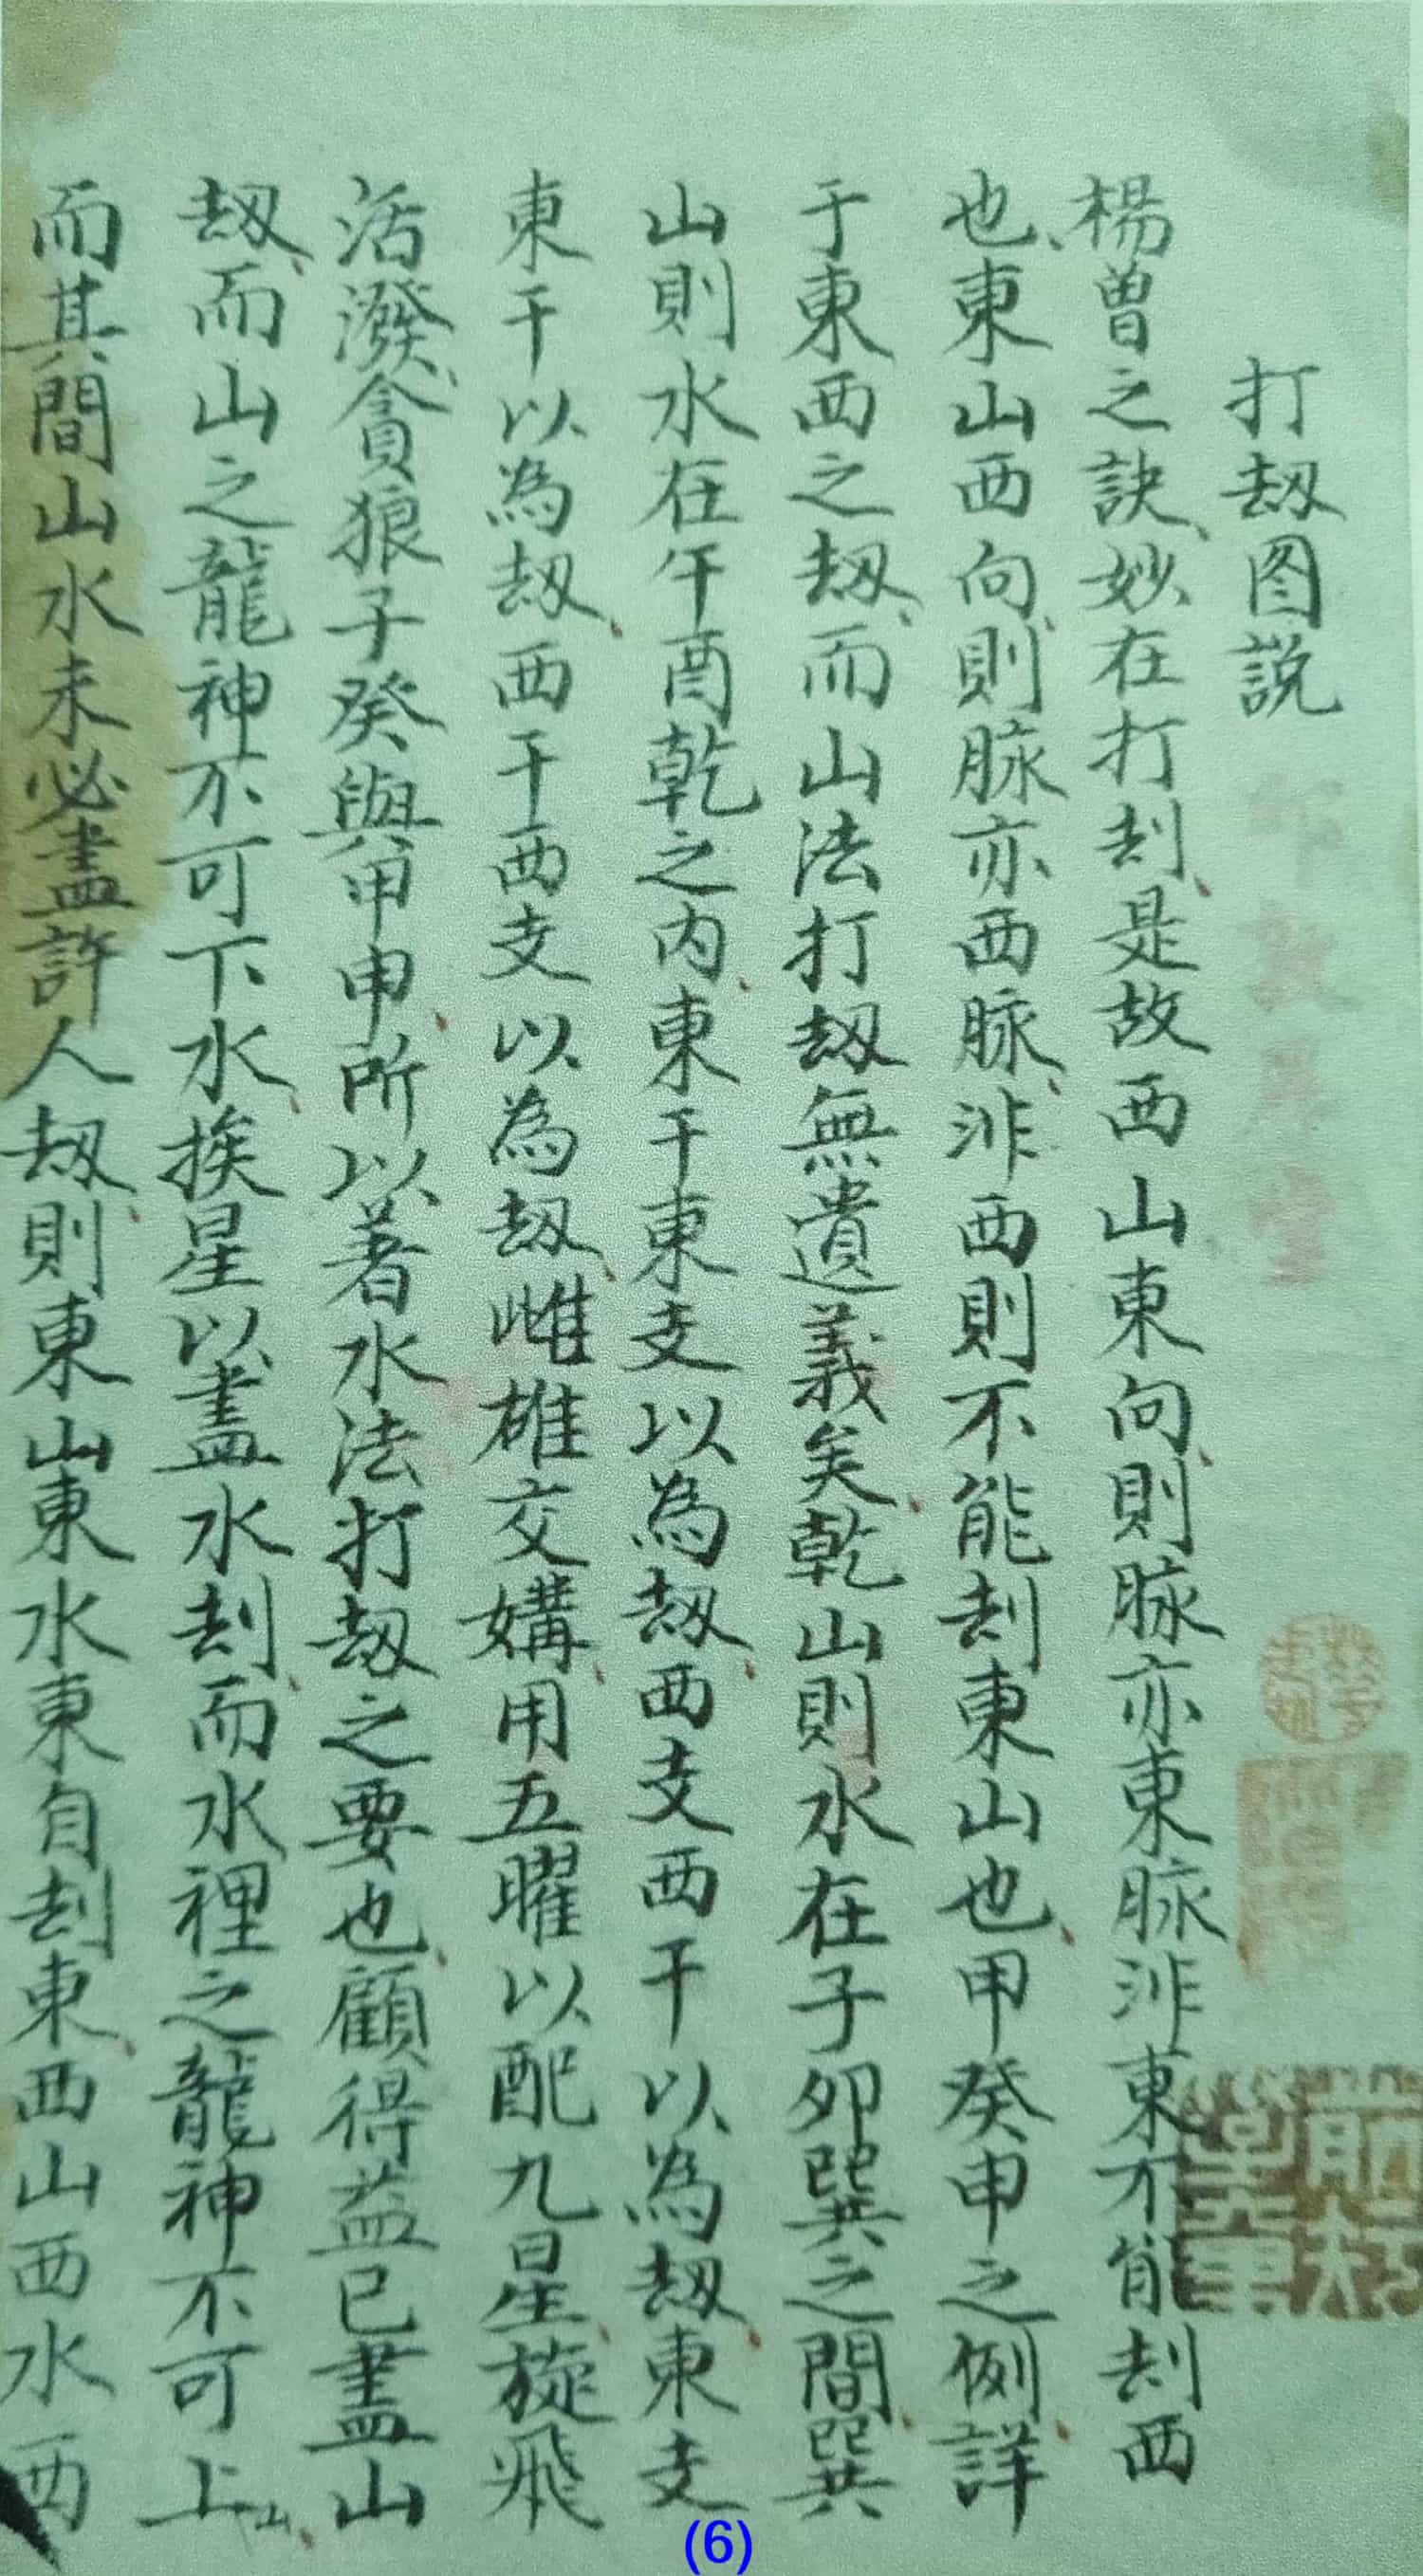 打刼图説
楊曾之訣妙在打刦是故西山東向則脉亦東脉非東不能刦西
也東山西向則脉亦西脉非西則不能刦東山也甲癸申之例詳
于東西之刼而山法打刼無遺義矣乾山則水在子卯巽之間巽
山則水在午酉乾之内東干東支以為刼西支西干以為刼東支
東干以為刼西干西支以為刼雌雄交媾用五曜以配九星旋飛
活潑貪狼子癸與甲申所以著水法打刼之要也顧得益已盡山
刼而山之龍神不可下水挨星以盡水刦而水裡之龍神不可上山
而其間山水未必盡許人刼則東山東水東自刦東西山西水西
(6)